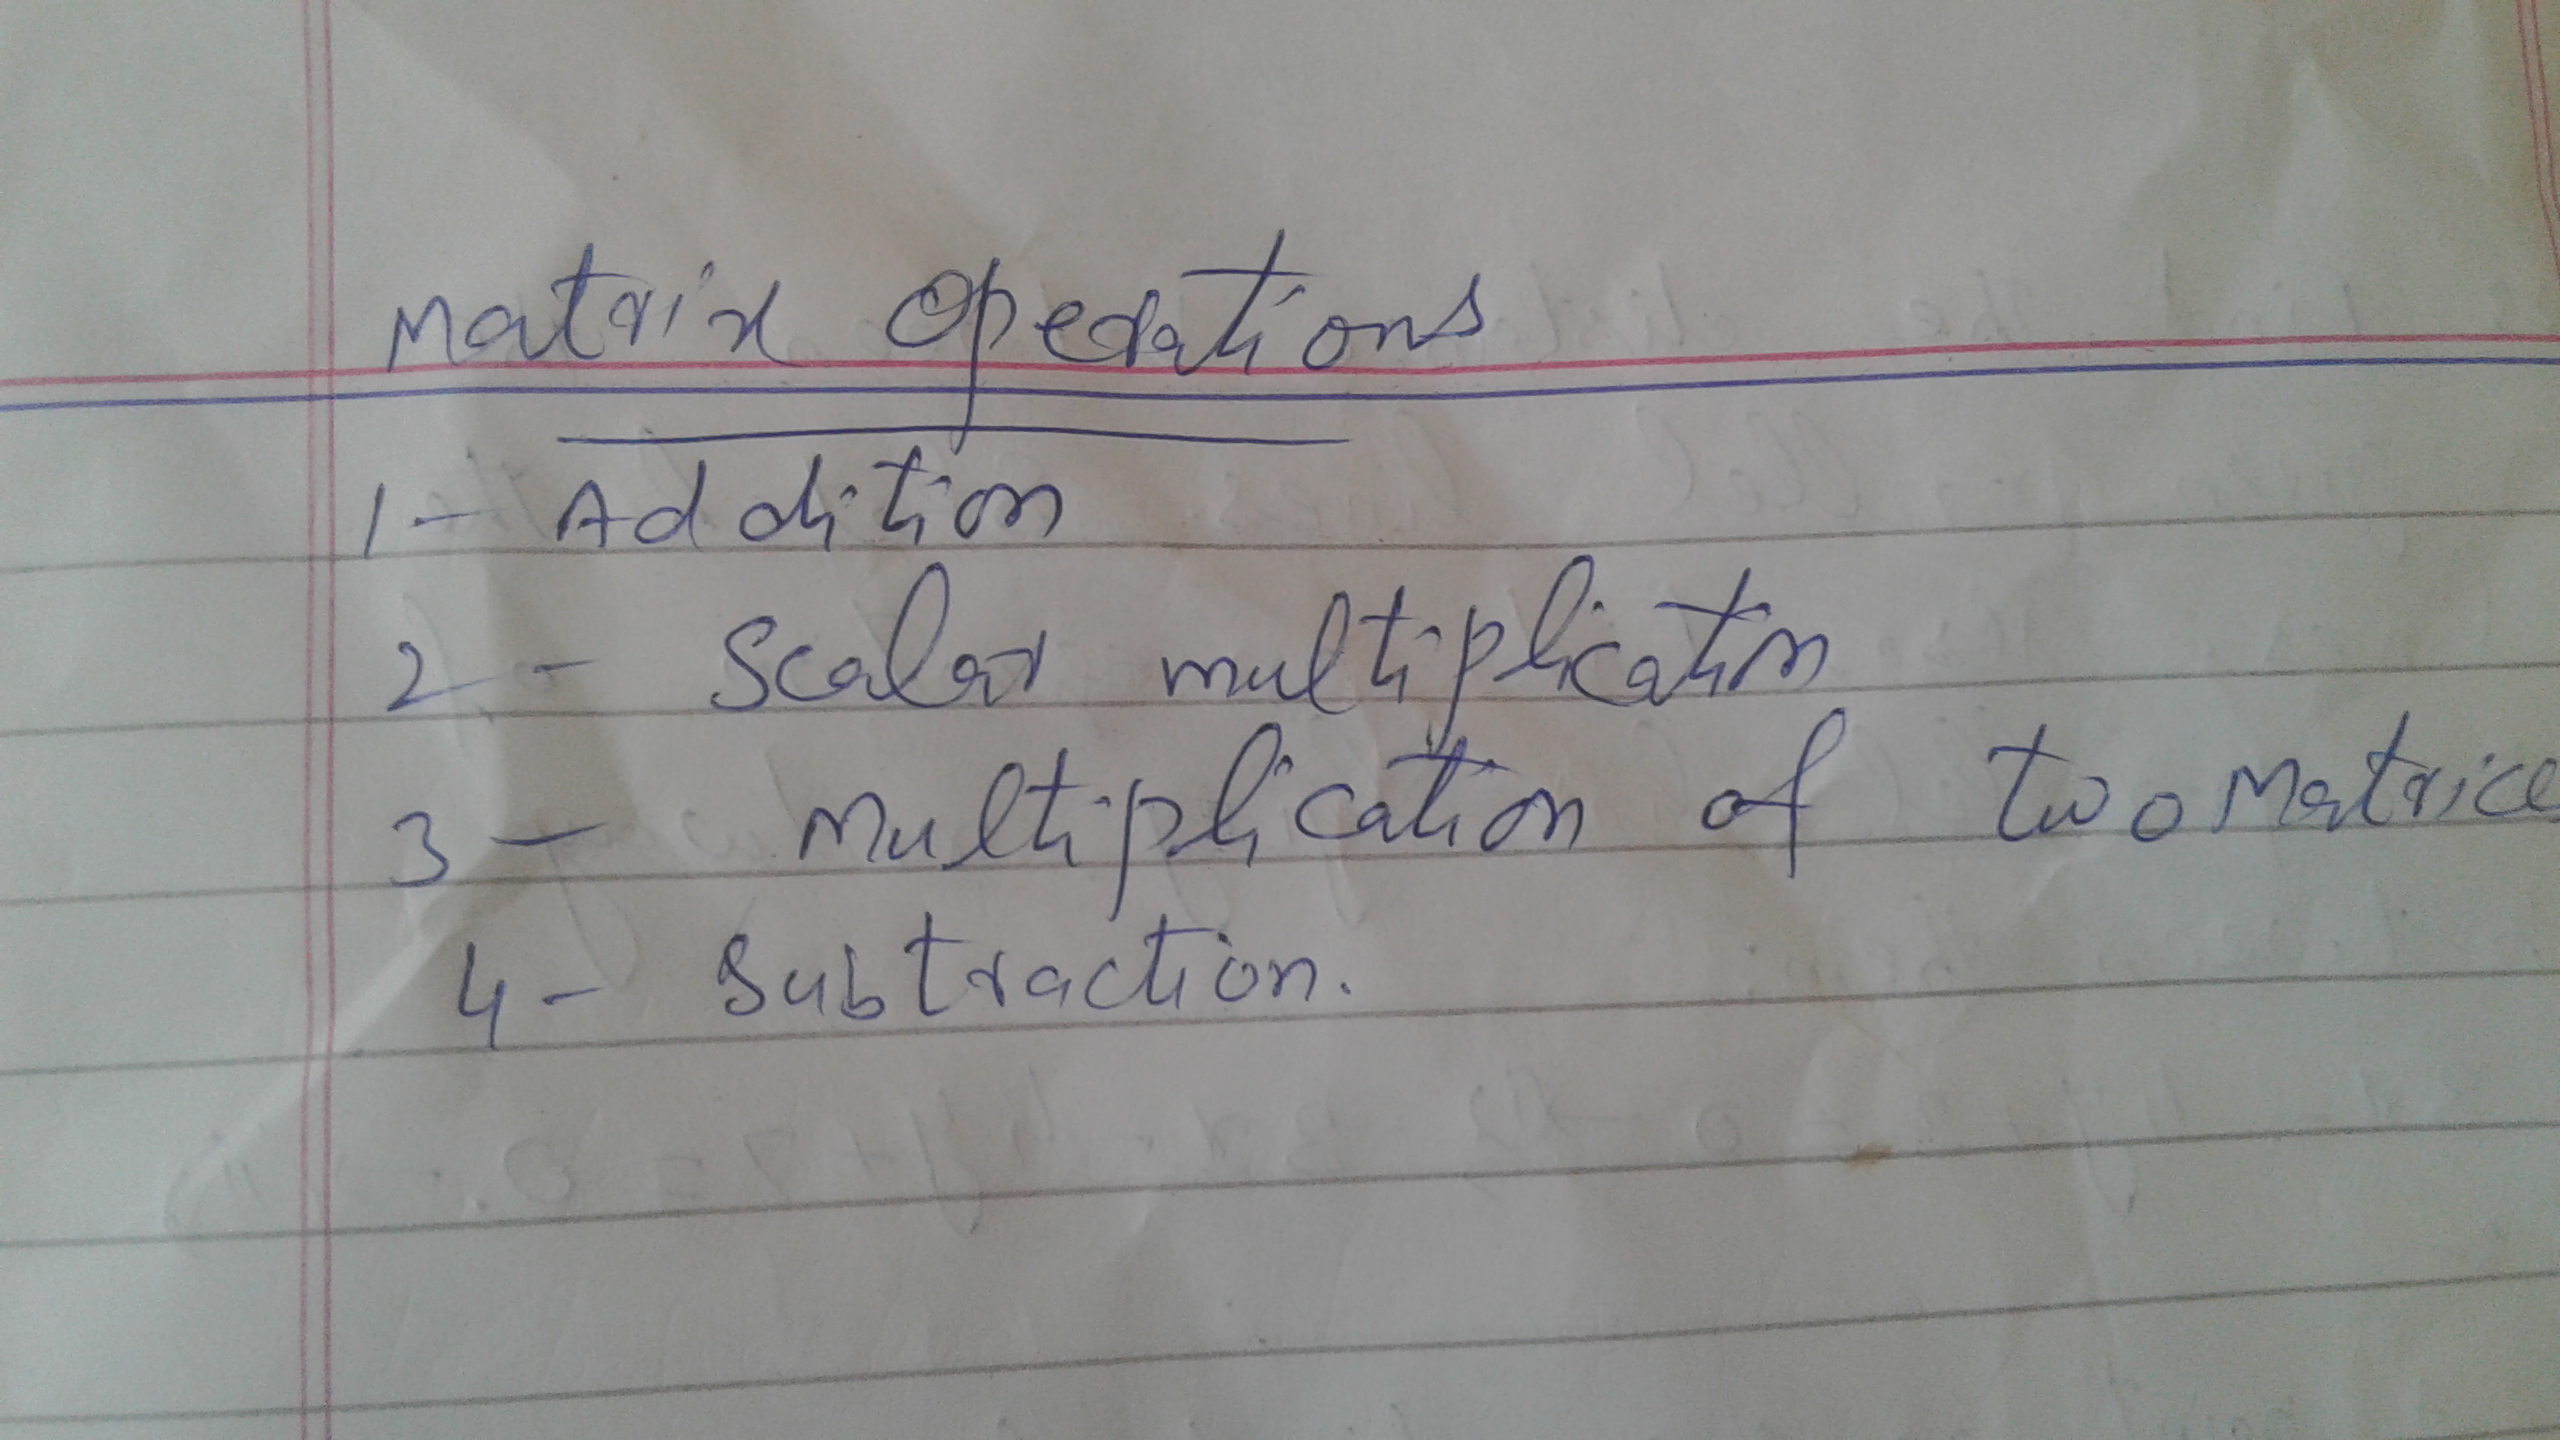 Matrix Operations
1- Addition
2- Scalar multiplication
3- Multiplication of two Matrices
4- Subtraction.